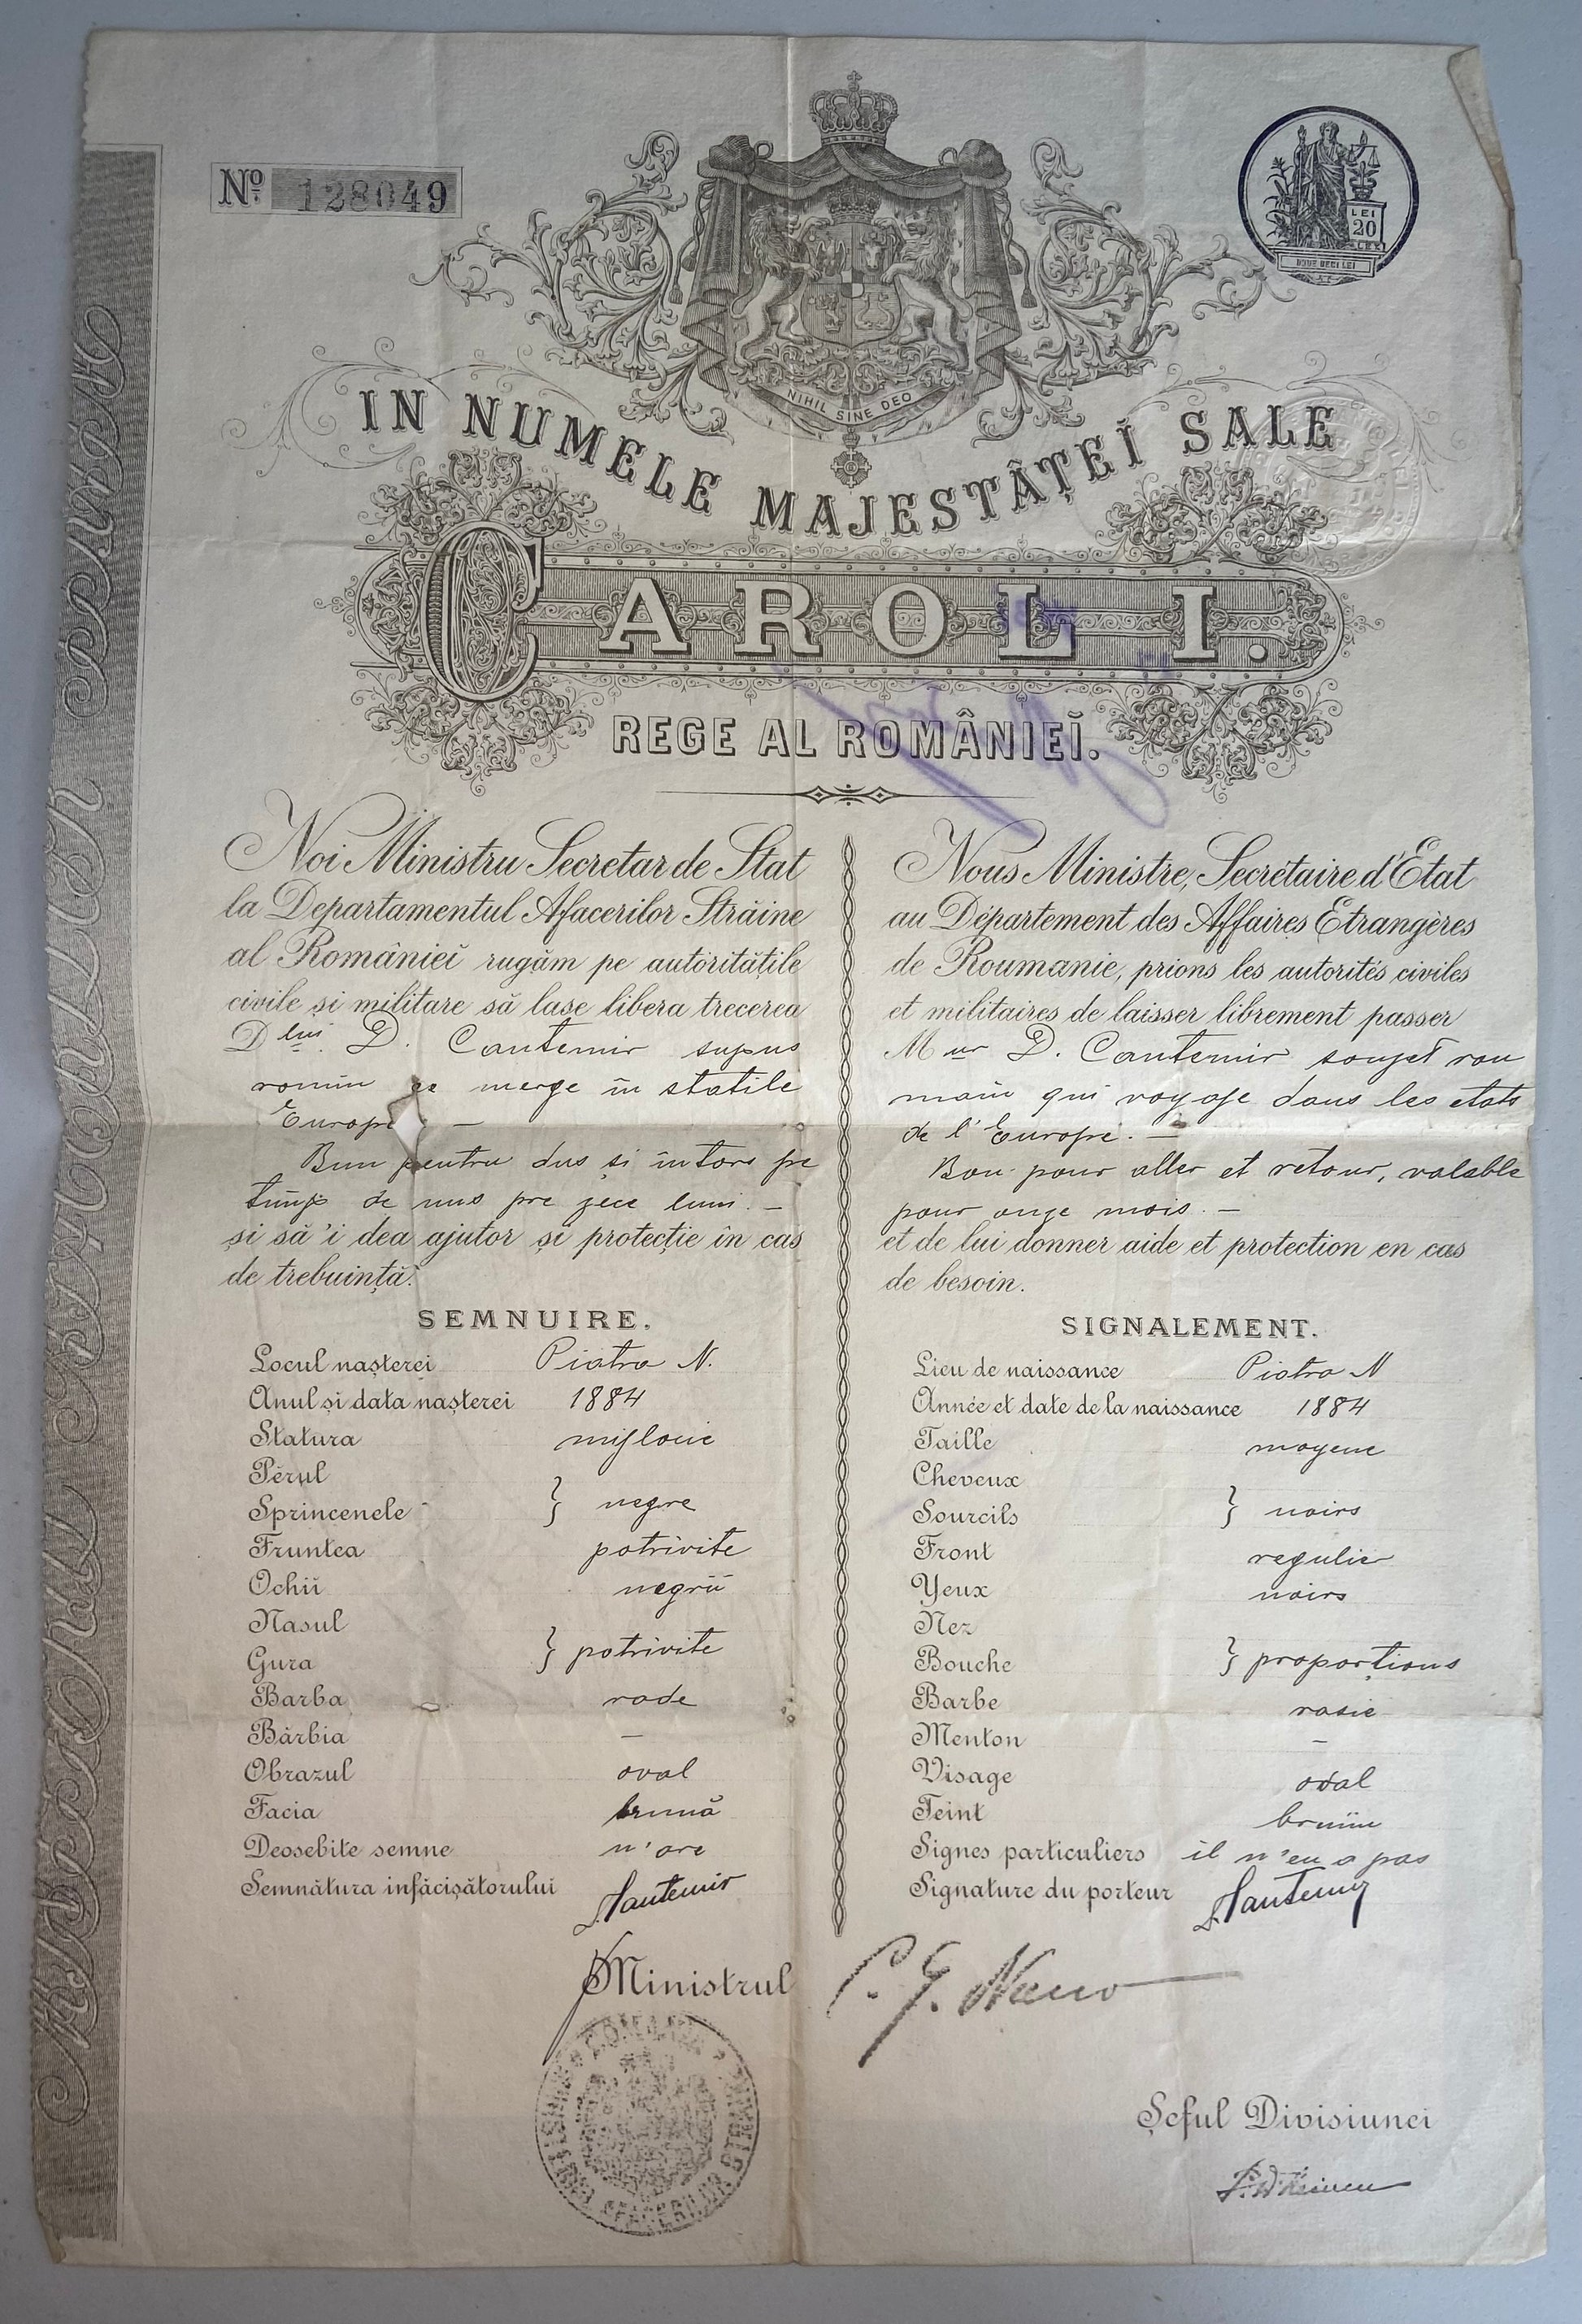 Nº 128049
LEI
20
NIHIL SINE DEO
IN NUMELE MAJESTĂȚEĬ SALE
CAROL I.
REGE AL ROMÂNIEĬ.
Noi Ministru Secretar de Stat
la Departamentul Afacerilor Străine
al Românieĭ rugăm pe autoritățile
civile și militare să lase libera trecerea
D lui D. Cantemir supus
romîn ce merge în statile
Europe –
Bun pentru dus și întors pe
timp de uns pre zece luni. –
și să'i dea ajutor și protecție în cas
de trebuință.
SEMNUIRE.
Locul nașterei Piatra N.
Anul și data nașterei 1884
Statura mijlocie
Pĕrul
Sprincenele } negre
Fruntea potrivite
Ochii negrii
Nasul
Gura } potrivite
Barba rade
Bărbia –
Obrazul oval
Facia brună
Deosebite semne n'are
Semnătura înfăcișătorului D. Cantemir
Nous Ministre, Secrétaire d'État
au Département des Affaires Étrangères
de Roumanie, prions les autorités civiles
et militaires de laisser librement passer
M ur D. Cantemir soujet rou
main qui voyage dans les etats
de l'Europe. –
Bon pour aller et retour, valable
pour onze mois. –
et de lui donner aide et protection en cas
de besoin.
SIGNALEMENT.
Lieu de naissance Piatra N
Année et date de la naissance 1884
Taille moyene
Cheveux
Sourcils } noirs
Front regulier
Yeux noirs
Nez
Bouche } proportions
Barbe rasie
Menton –
Visage oval
Teint brune
Signes particuliers il n'en a pas
Signature du porteur D. Cantemir
Ministrul
ROMANIA
AFACERILOR STRAINE
Șeful Divisiunei